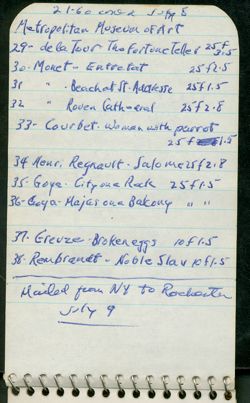 21-60 July 8
Metropolitan Museum of Art
29- de la Tour The Fortune Teller 25 f 2.5
30- Monet- Entretat 25 f 2.5
31 " - Beach at St. Addresse 25 f 1.5
32 " Roven Cathedral 25 f 2.8
33- Courbet- Woman with parrot
25 f 1.5
34 Henri Regnault- Salome 25 f 2.8
35- Goya- City on a Rock 25 f 1.5
36- Goya- Majas on a Balcony " "
37- Greuze- Broken eggs 10 f 1.5
38- Rembrandt- Noble Slav 10 f 1.5
Mailed from NY to Rochester
July 9